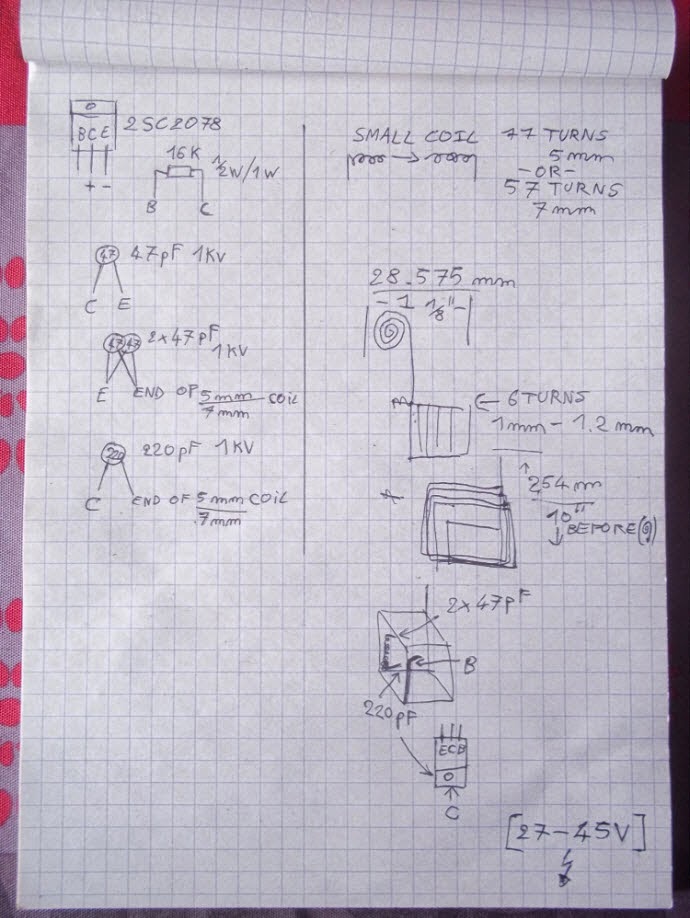 BCE
2SC2078
+ -
16K
½W/1W
B C
47
47pF 1KV
C E
47 47
2x47pF
1KV
E END OF 5mm COIL
7mm
220
220pF 1KV
C END OF 5mm COIL
.7mm
SMALL COIL 77 TURNS
5mm
-OR-
57 TURNS
7mm
28.575 mm
- 1 1/8" -
6 TURNS
1mm - 1.2mm
254m
10"
BEFORE
2x47pF
B
220pF
ECB
C
[27-45V]